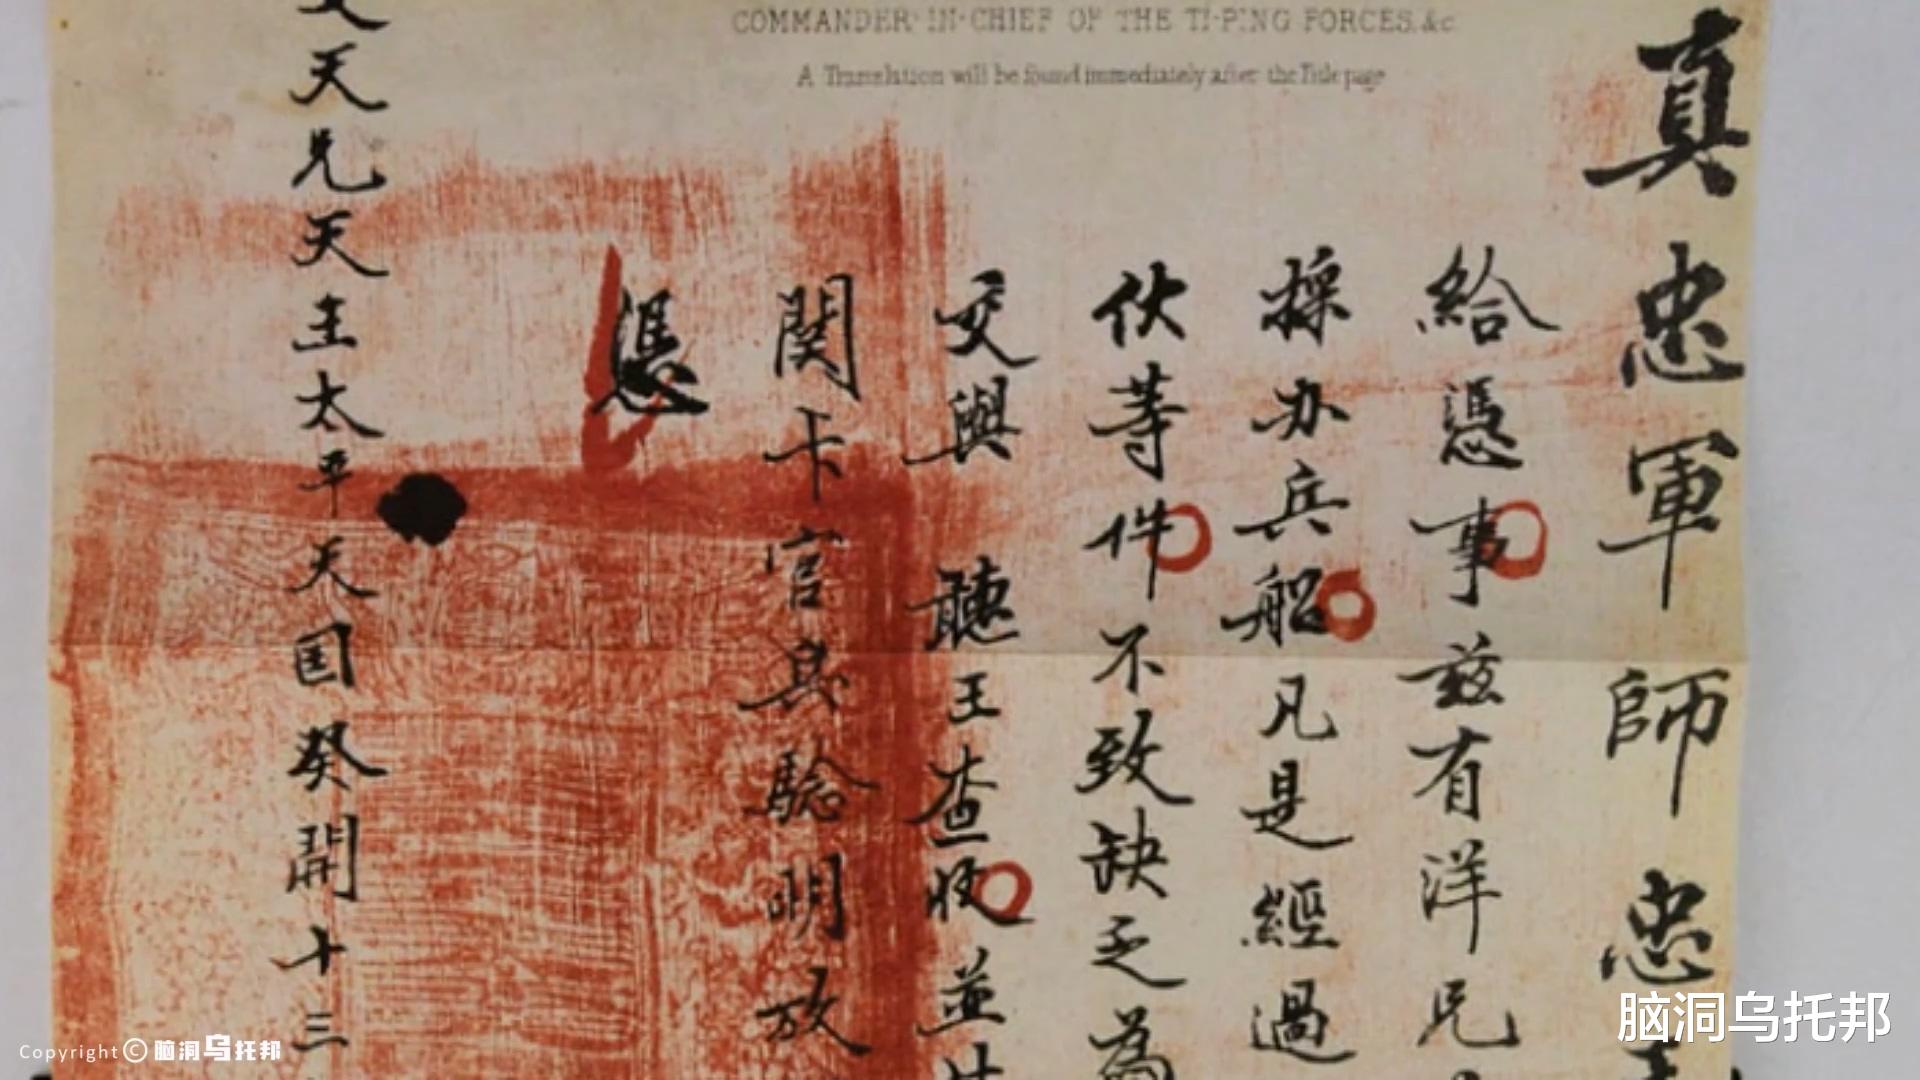 COMMANDER-IN-CHIEF OF THE TI-PING FORCES, &c.
A Translation will be found immediately after the Title page
真忠軍師忠
給憑事茲有洋兄
採办兵船凡是經過
伙等件不致缺乏為
交與 聽王查收並
関卡官兵驗明放
憑
天兄天王太平天囯癸開十三
脑洞乌托邦
Copyright © 脑洞乌托邦